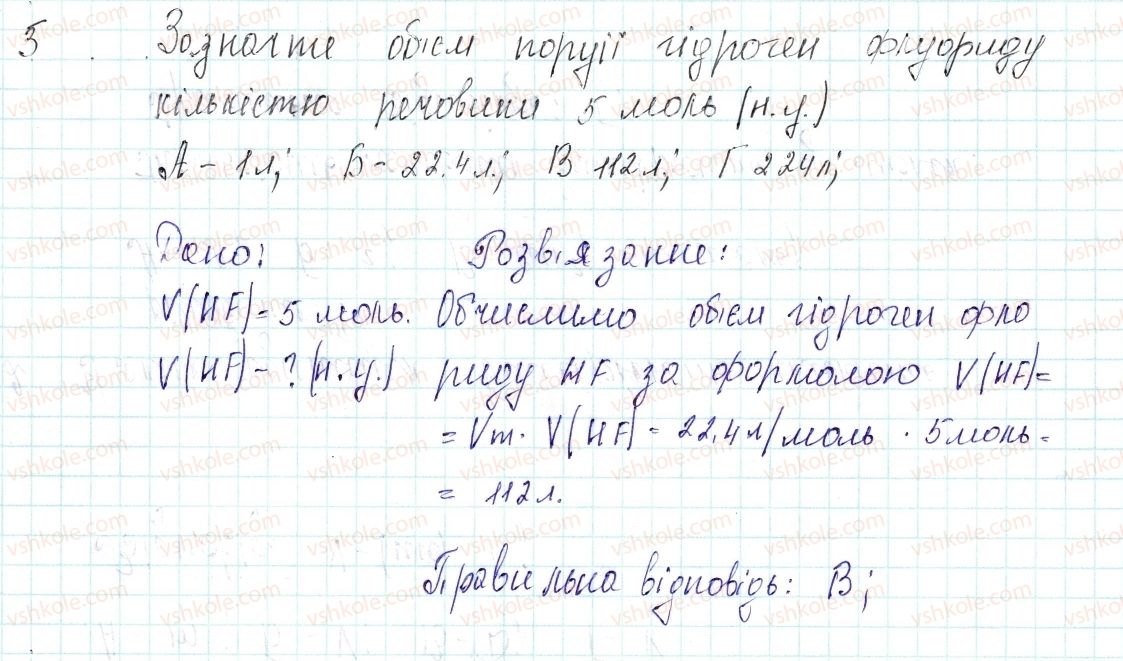 5 Зазначте об'єм порції гідроген флуориду
кількістю речовини 5 моль (н.у.)
А - 1л; Б - 22.4л; В 112л; Г 224л;
Дано: Розв'язання:
V(HF)=5 моль. Обчислимо об'єм гідроген фло
V(HF)-? (н.у.) риду HF за формолою V(HF)=
= Vm · V(HF) = 22.4л/моль · 5моль =
= 112л.
Правильна відповідь: В;